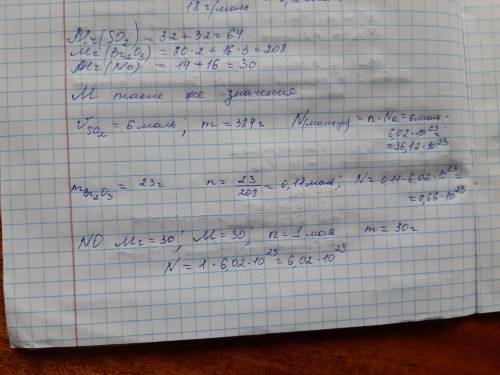 18 г/моль
Mr(SO2) = 32 + 32 = 64
Mr(Br2O3) = 80·2 + 16·3 = 208
Mr(NO) = 14 + 16 = 30
M такие же значения
VSO2 = 6 моль; m = 384 г N(молекул) = n·Na = 6 моль·
6,02·10^23 =
= 36,12·10^23
mBr2O3 = 23 г n = 23/208 = 0,11 моль; N = 0,11·6,02·10^23 =
= 0,66·10^23
NO Mr = 30; M = 30; n = 1 моль m = 30 г
N = 1·6,02·10^23 = 6,02·10^23